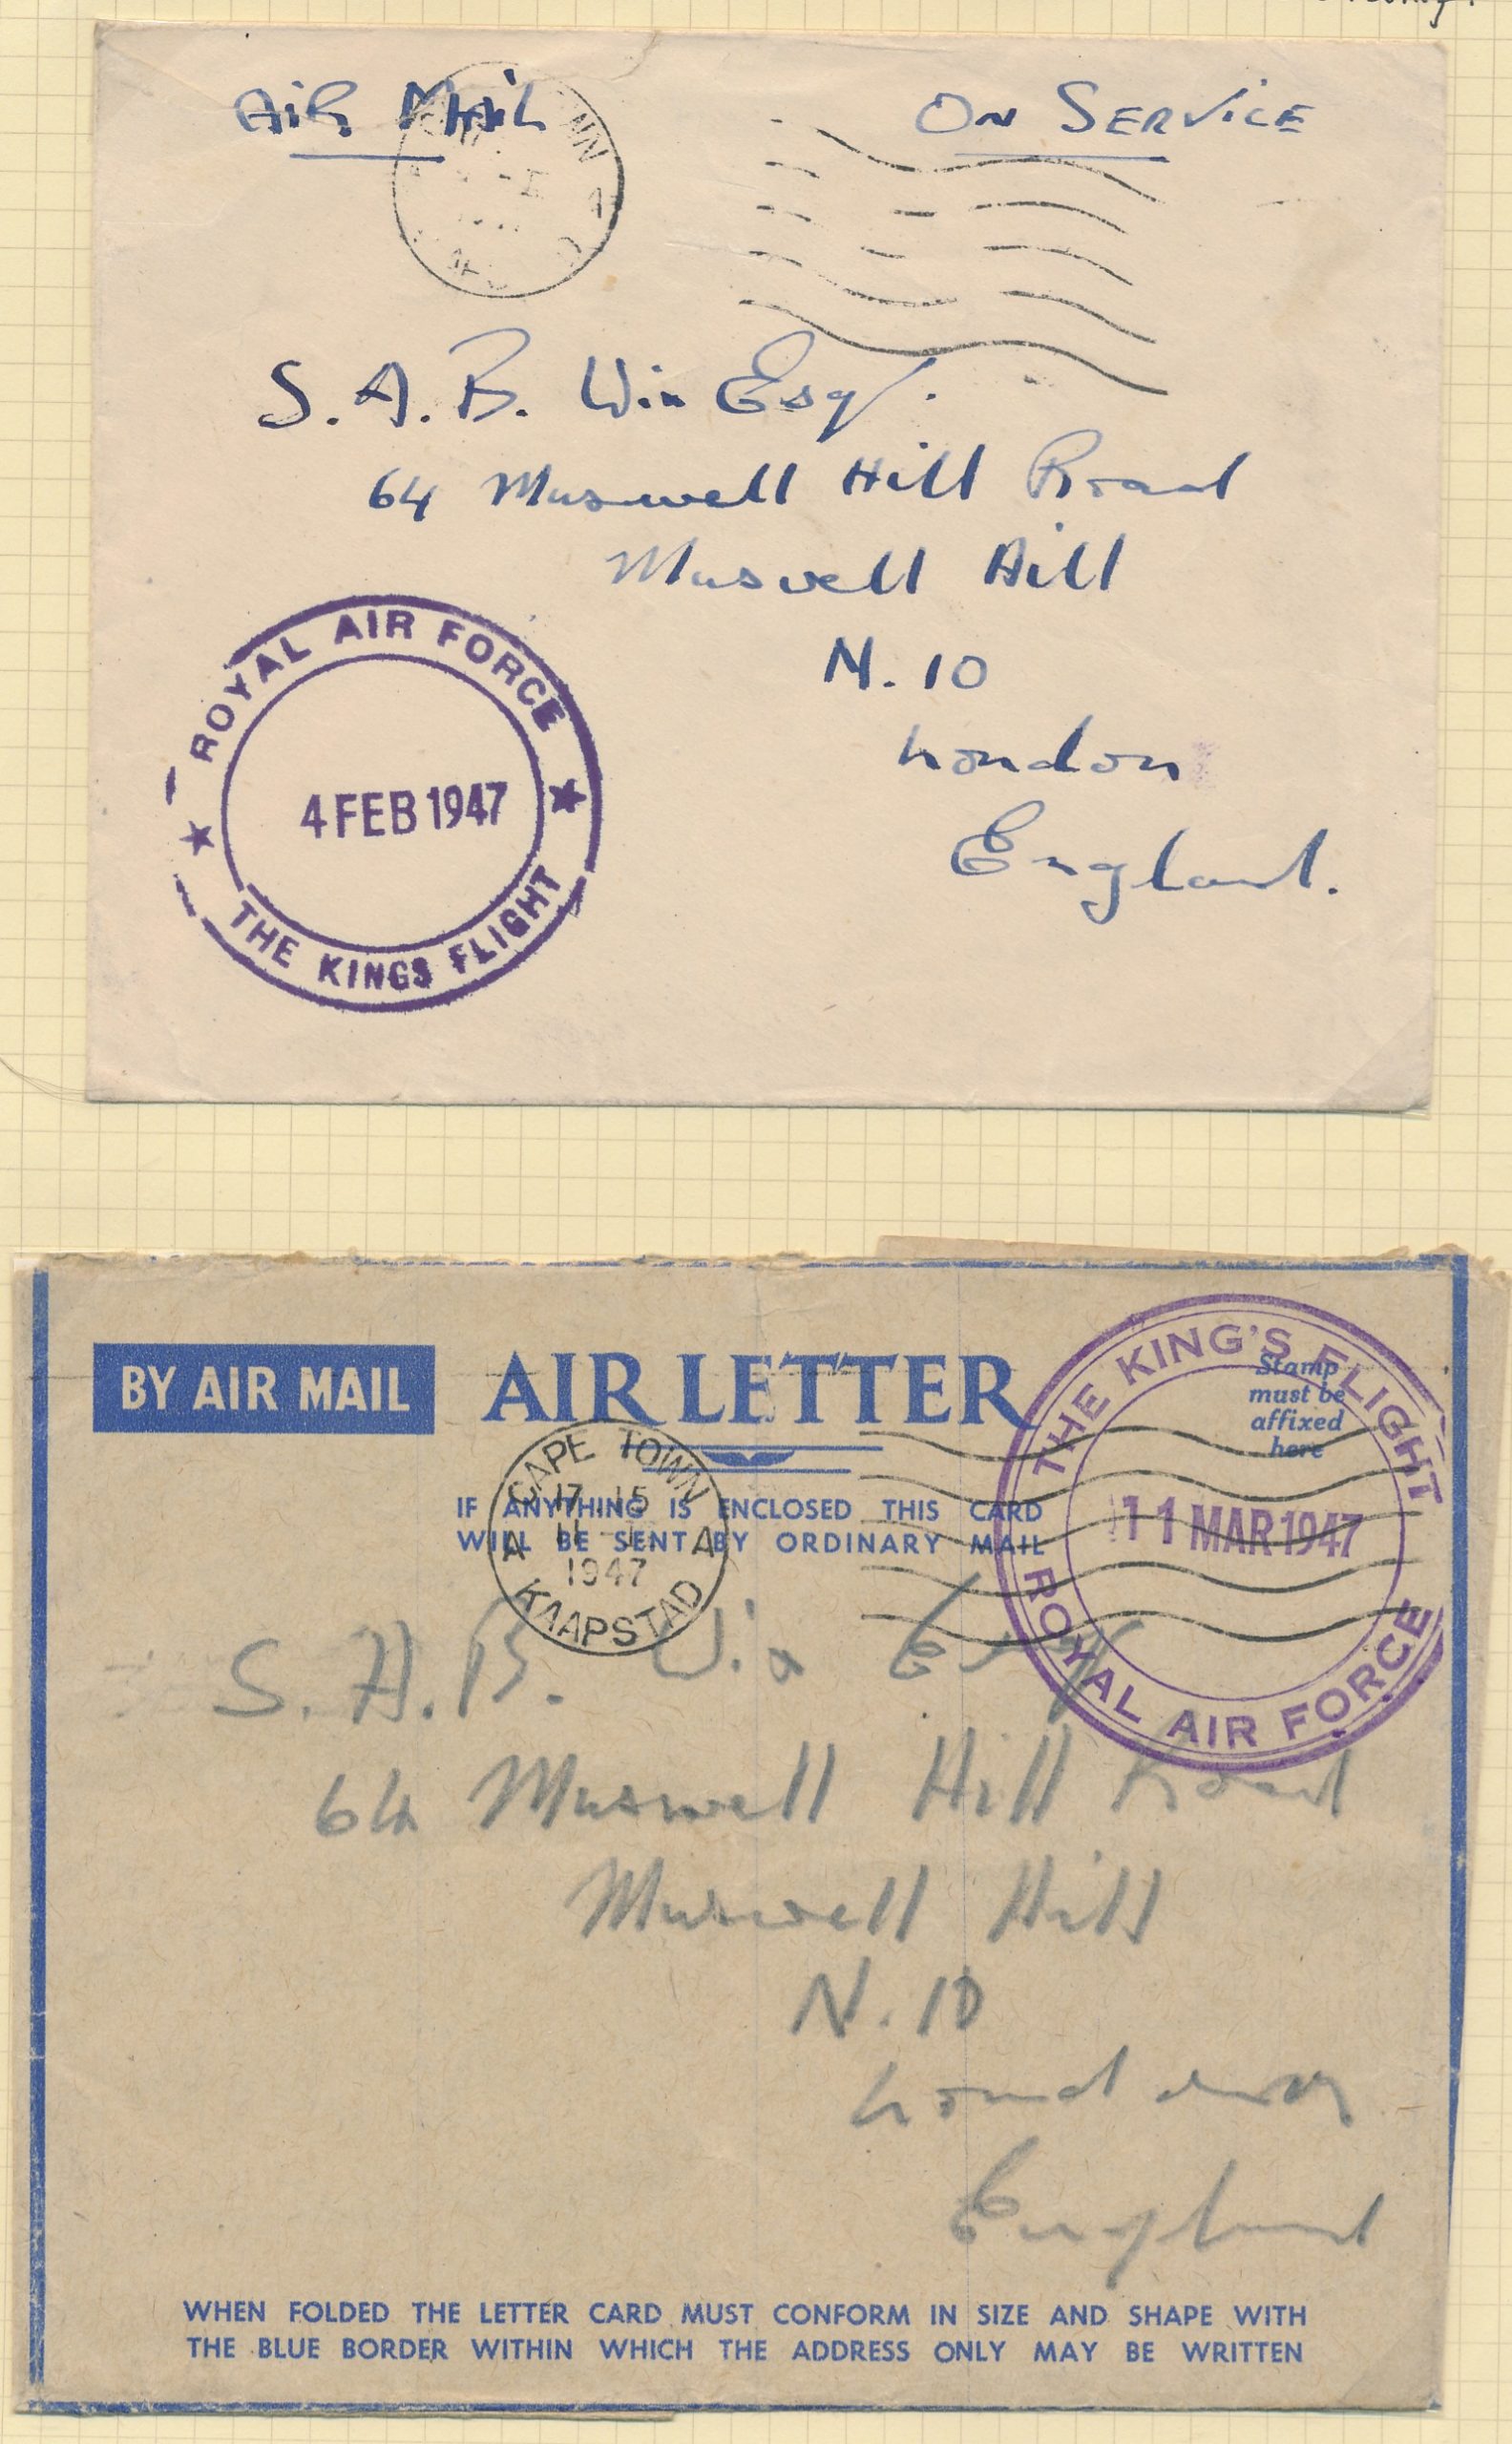 AIR MAIL
ON SERVICE
NN
S. A. B. Wix Esq.
64 Muswell Hill Road
Muswell Hill
N. 10
London
England.
ROYAL AIR FORCE
4 FEB 1947
THE KINGS FLIGHT
BY AIR MAIL
AIR LETTER
IF ANYTHING IS ENCLOSED THIS CARD
WILL BE SENT BY ORDINARY MAIL
Stamp
must be
affixed
here
THE KING'S FLIGHT
11 MAR 1947
ROYAL AIR FORCE
CAPE TOWN
17 15
A 11 A
1947
KAAPSTAD
S. A. B. Wix Esq
64 Muswell Hill Road
Muswell Hill
N. 10
London
England
WHEN FOLDED THE LETTER CARD MUST CONFORM IN SIZE AND SHAPE WITH
THE BLUE BORDER WITHIN WHICH THE ADDRESS ONLY MAY BE WRITTEN